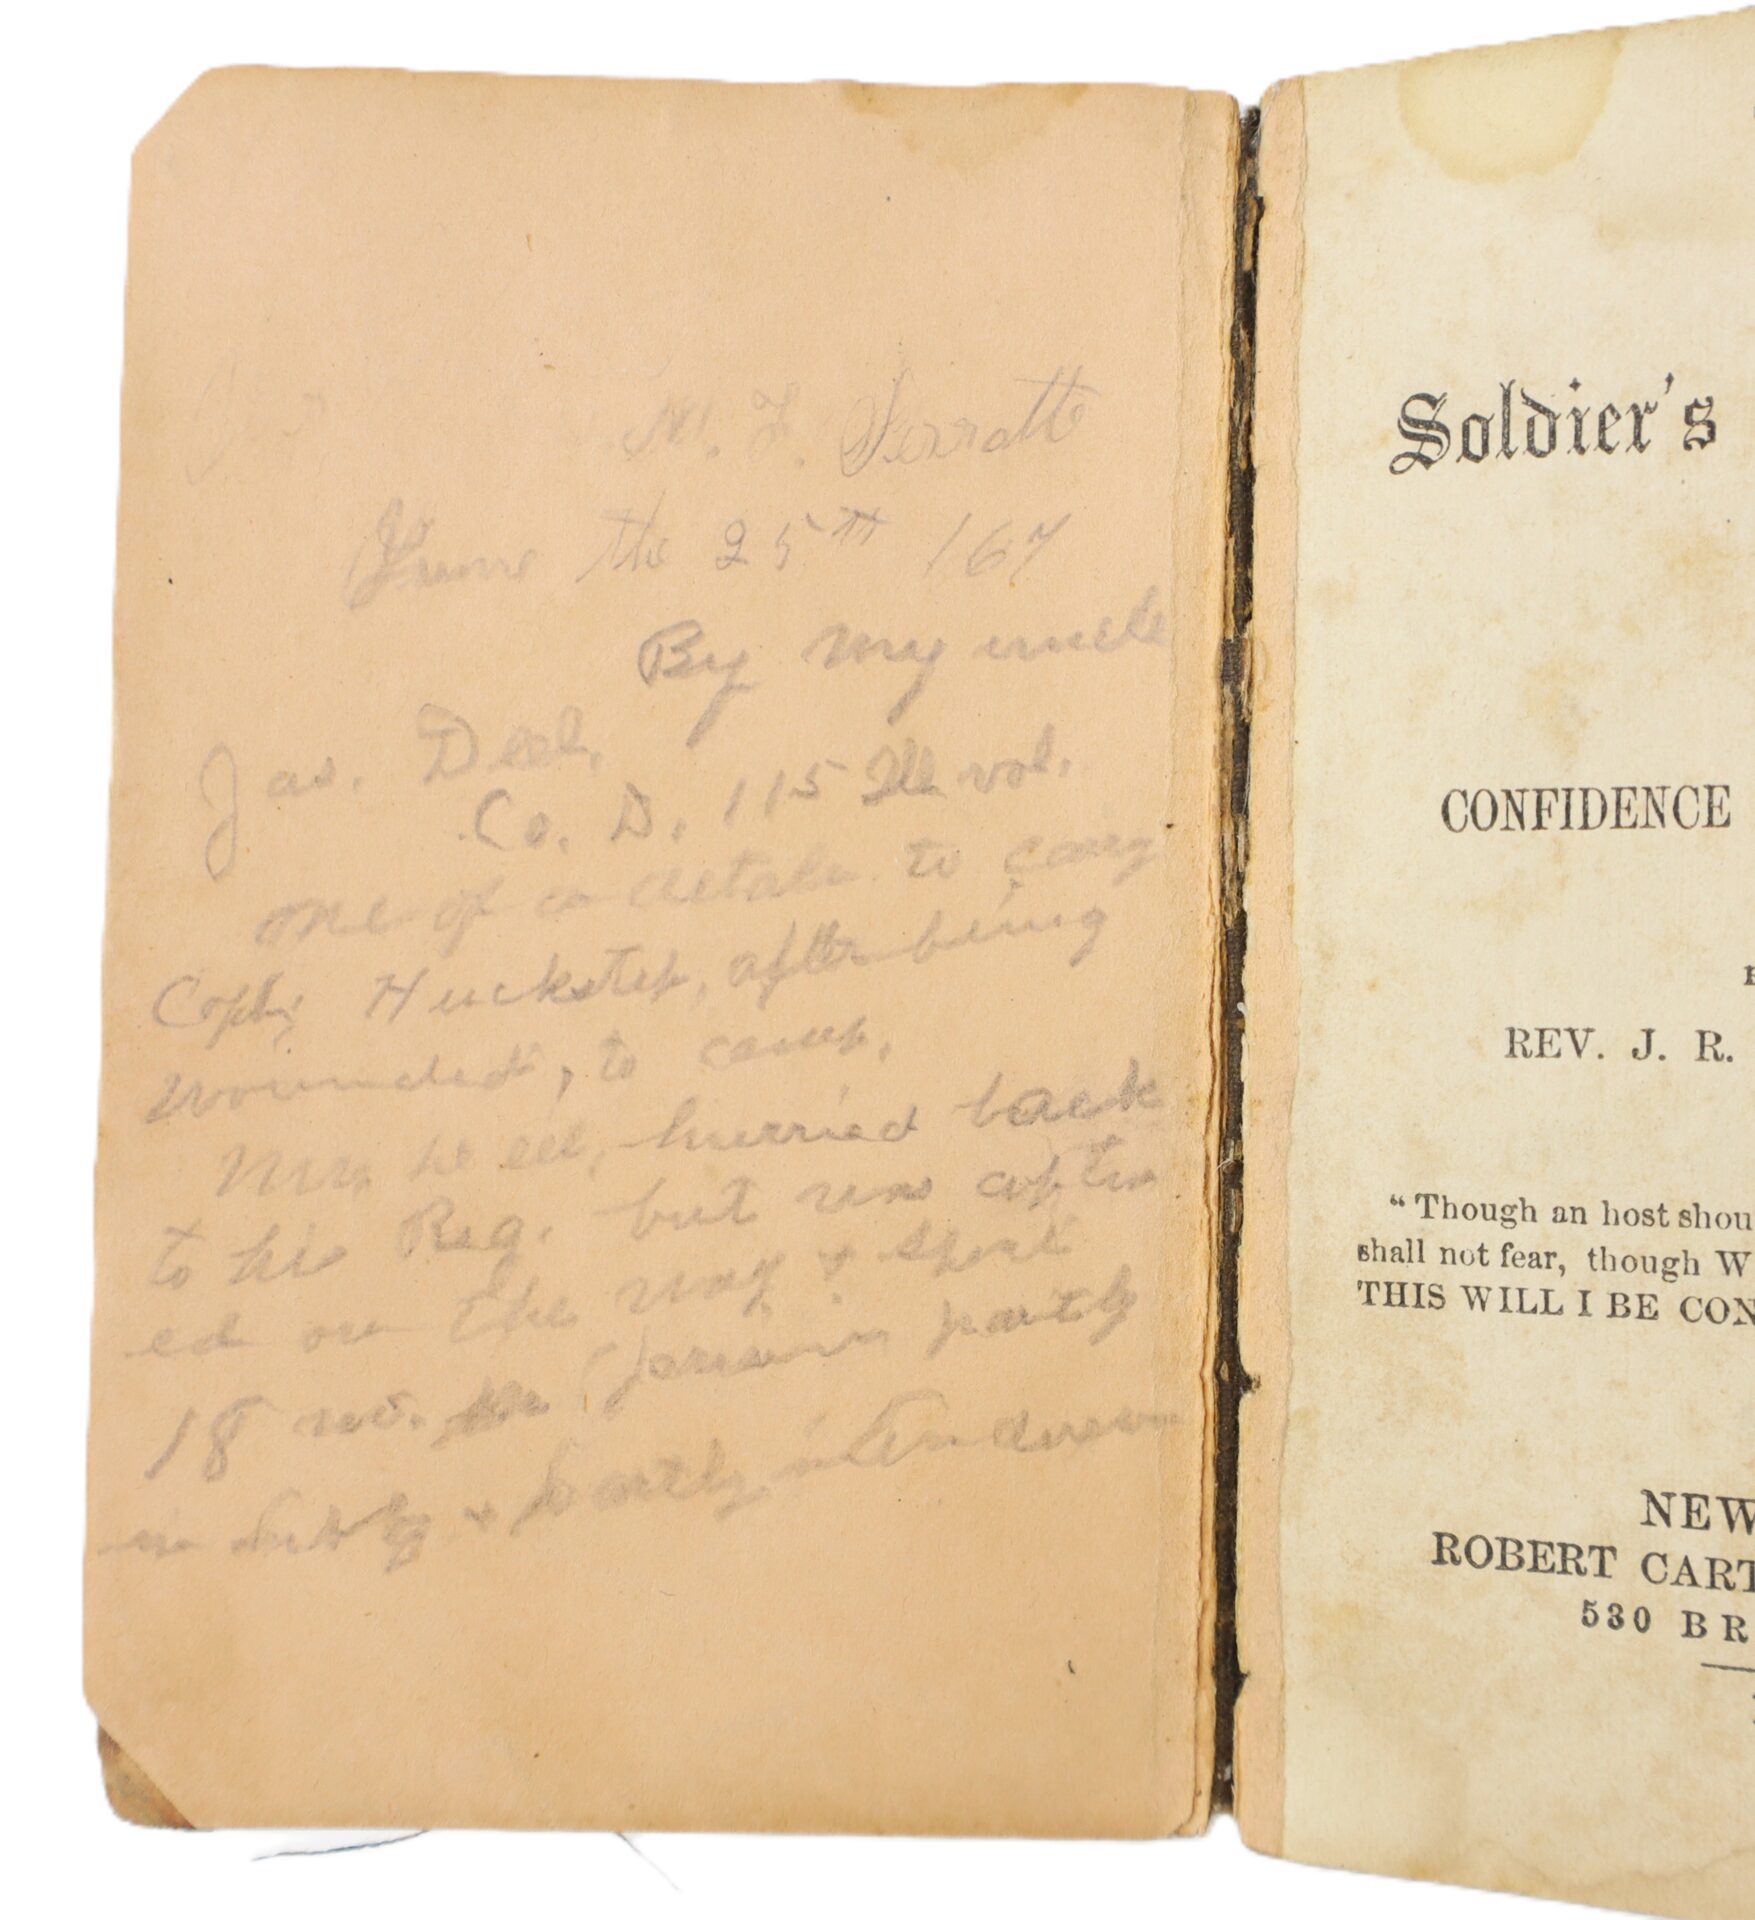 Serratt
June the 25th 167
By my uncle
Jas. Deal,
Co. D. 115 Ill vol.
one of a detale to carry
Capt. Huckstep, after being
wounded, to camp.
Mr. hurried back
to his Reg. but was captur
ed on the way & spent
18 mo. in prison partly
in & partly in
Soldier's
CONFIDENCE
REV. J. R.
“Though an host shou
shall not fear, though W
THIS WILL I BE CON
NEW
ROBERT CART
530 BR